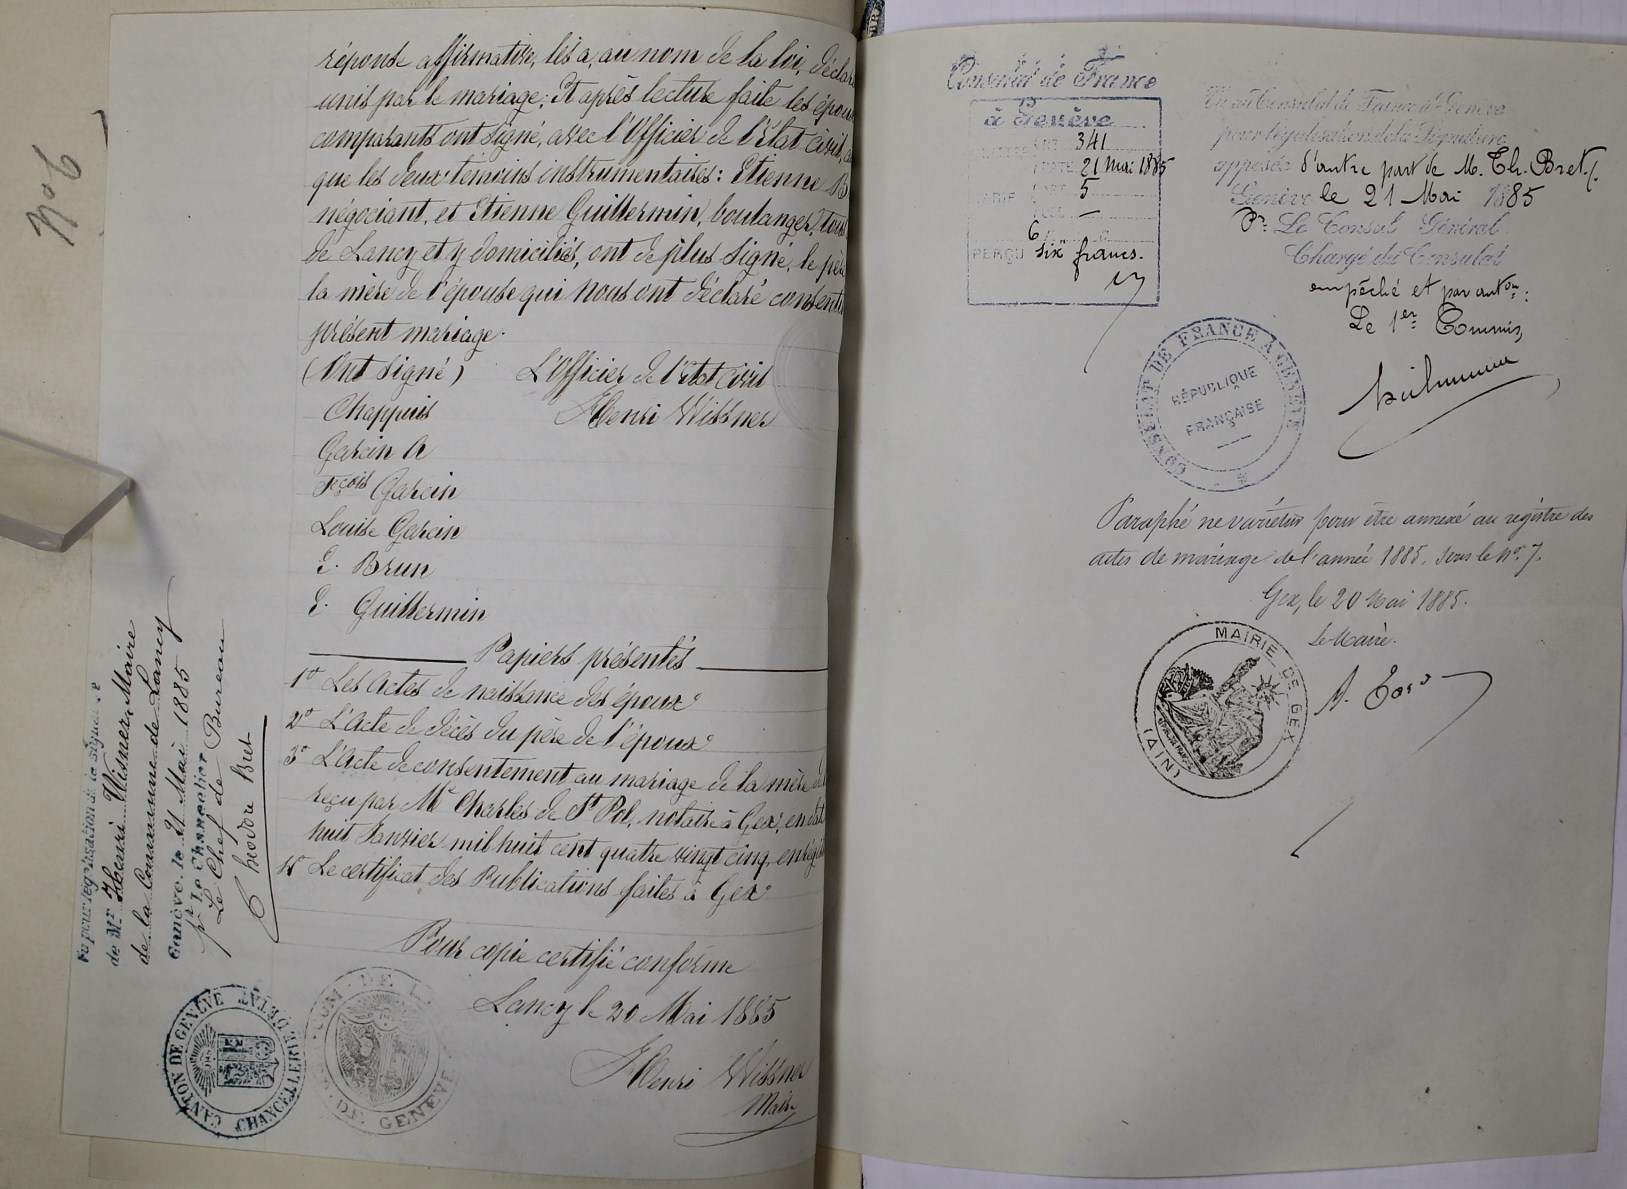 réponse affirmative, les a, au nom de la loi, déclaré
unis par le mariage; Et après lecture faite les époux
comparants ont signé, avec l'Officier de l'État civil,
que les deux témoins instrumentaires: Etienne B
négociant, et Etienne Guillermin, boulanger, tous
de Lancy et y domiciliés, ont de plus signé, le père
la mère de l'épouse qui nous ont déclaré consentir
présent mariage.
(Ont signé) L'Officier de l'état civil
Chappuis Henri Wissner
Garcin A
Fçois Garcin
Louise Garcin
E. Brun
E. Guillermin
Papiers présentés
1° Les Actes de naissance des époux
2° L'Acte de décès du père de l'époux
3° L'Acte de consentement au mariage de la mère de
reçu par Me Charles de St Pol, notaire à Gex, en date
huit Janvier mil huit cent quatre vingt cinq, enrégis
4° Le certificat des Publications faites à Gex
Pour copie certifié conforme
Lancy le 20 Mai 1885
Henri Wissner
Maire
COM. DE L
DE GENÈVE
N° 6
Vu pour légalisation de la signature
de Mr Henri Wisner Maire
de la Commune de Lancy
Genève, le 21 Mai 1885
pr Le Chancelier
Le Chef de Bureau
Théodore Bret
CANTON DE GENÈVE
CHANCELLERIE D'ETAT
Consulat de France
à Genève
341
DATE 21 Mai 1885
5
6
PERÇU Six francs.
Vu au Consulat de France à Genève
pour légalisation de la Signature
apposée d'autre part de M. Th. Bret.
Genève le 21 Mai 1885
Pr. Le Consul Général
Chargé du Consulat
empêché et par auton:
Le 1er Commis,
CONSULAT DE FRANCE A GENÈVE
RÉPUBLIQUE
FRANÇAISE
Paraphé ne varietur pour être annexé au registre des
actes de mariage de l'année 1885, sous le No. 7.
Gex, le 20 Mai 1885.
Le Maire.
MAIRIE DE GEX
(AIN)